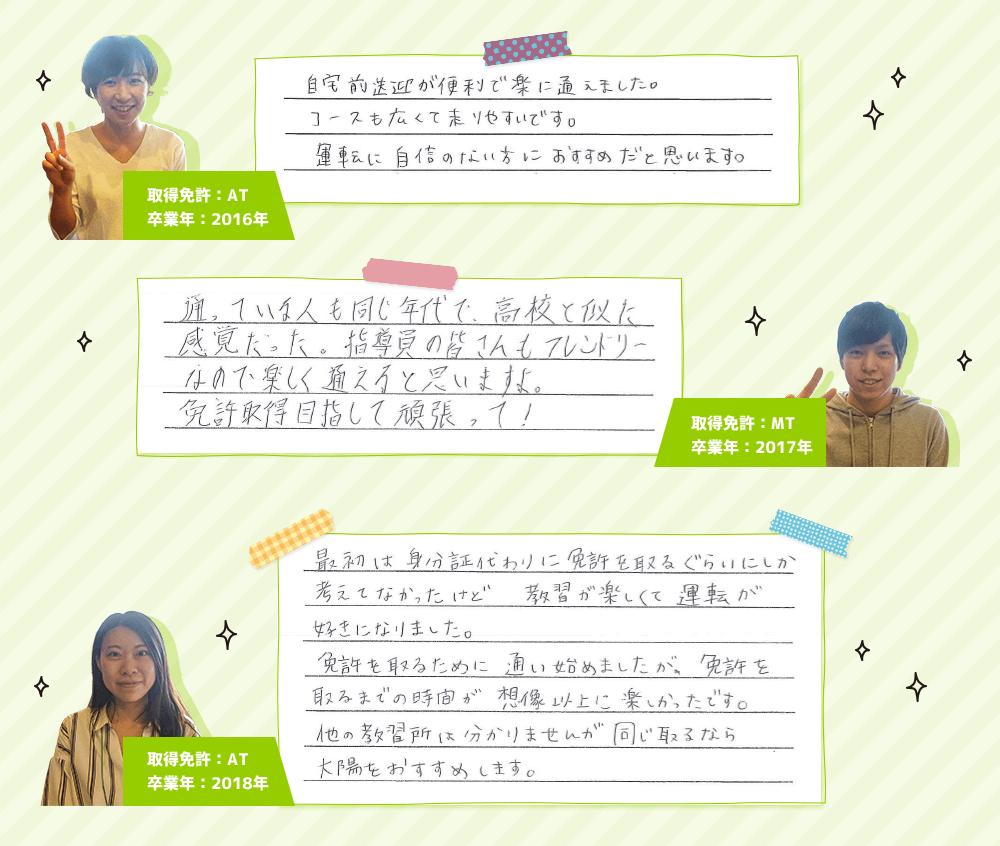 自宅前送迎が便利で楽に通えました。
コースも広くて走りやすいです。
運転に自信のない方におすすめだと思います。
取得免許：AT
卒業年：2016年
通っている人も同じ年代で、高校と似た
感覚だった。指導員の皆さんもフレンドリー
なので楽しく通えると思いますよ。
免許取得目指して頑張って！
取得免許：MT
卒業年：2017年
最初は身分証代わりに免許を取るぐらいにしか
考えてなかったけど 教習が楽しくて運転が
好きになりました。
免許を取るために通い始めましたが、免許を
取るまでの時間が想像以上に楽しかったです。
他の教習所は分かりませんが同じ取るなら
太陽をおすすめします。
取得免許：AT
卒業年：2018年